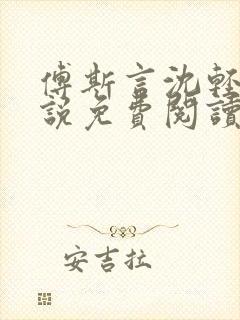 傅斯言沈輕
說免費閱讀
安吉拉